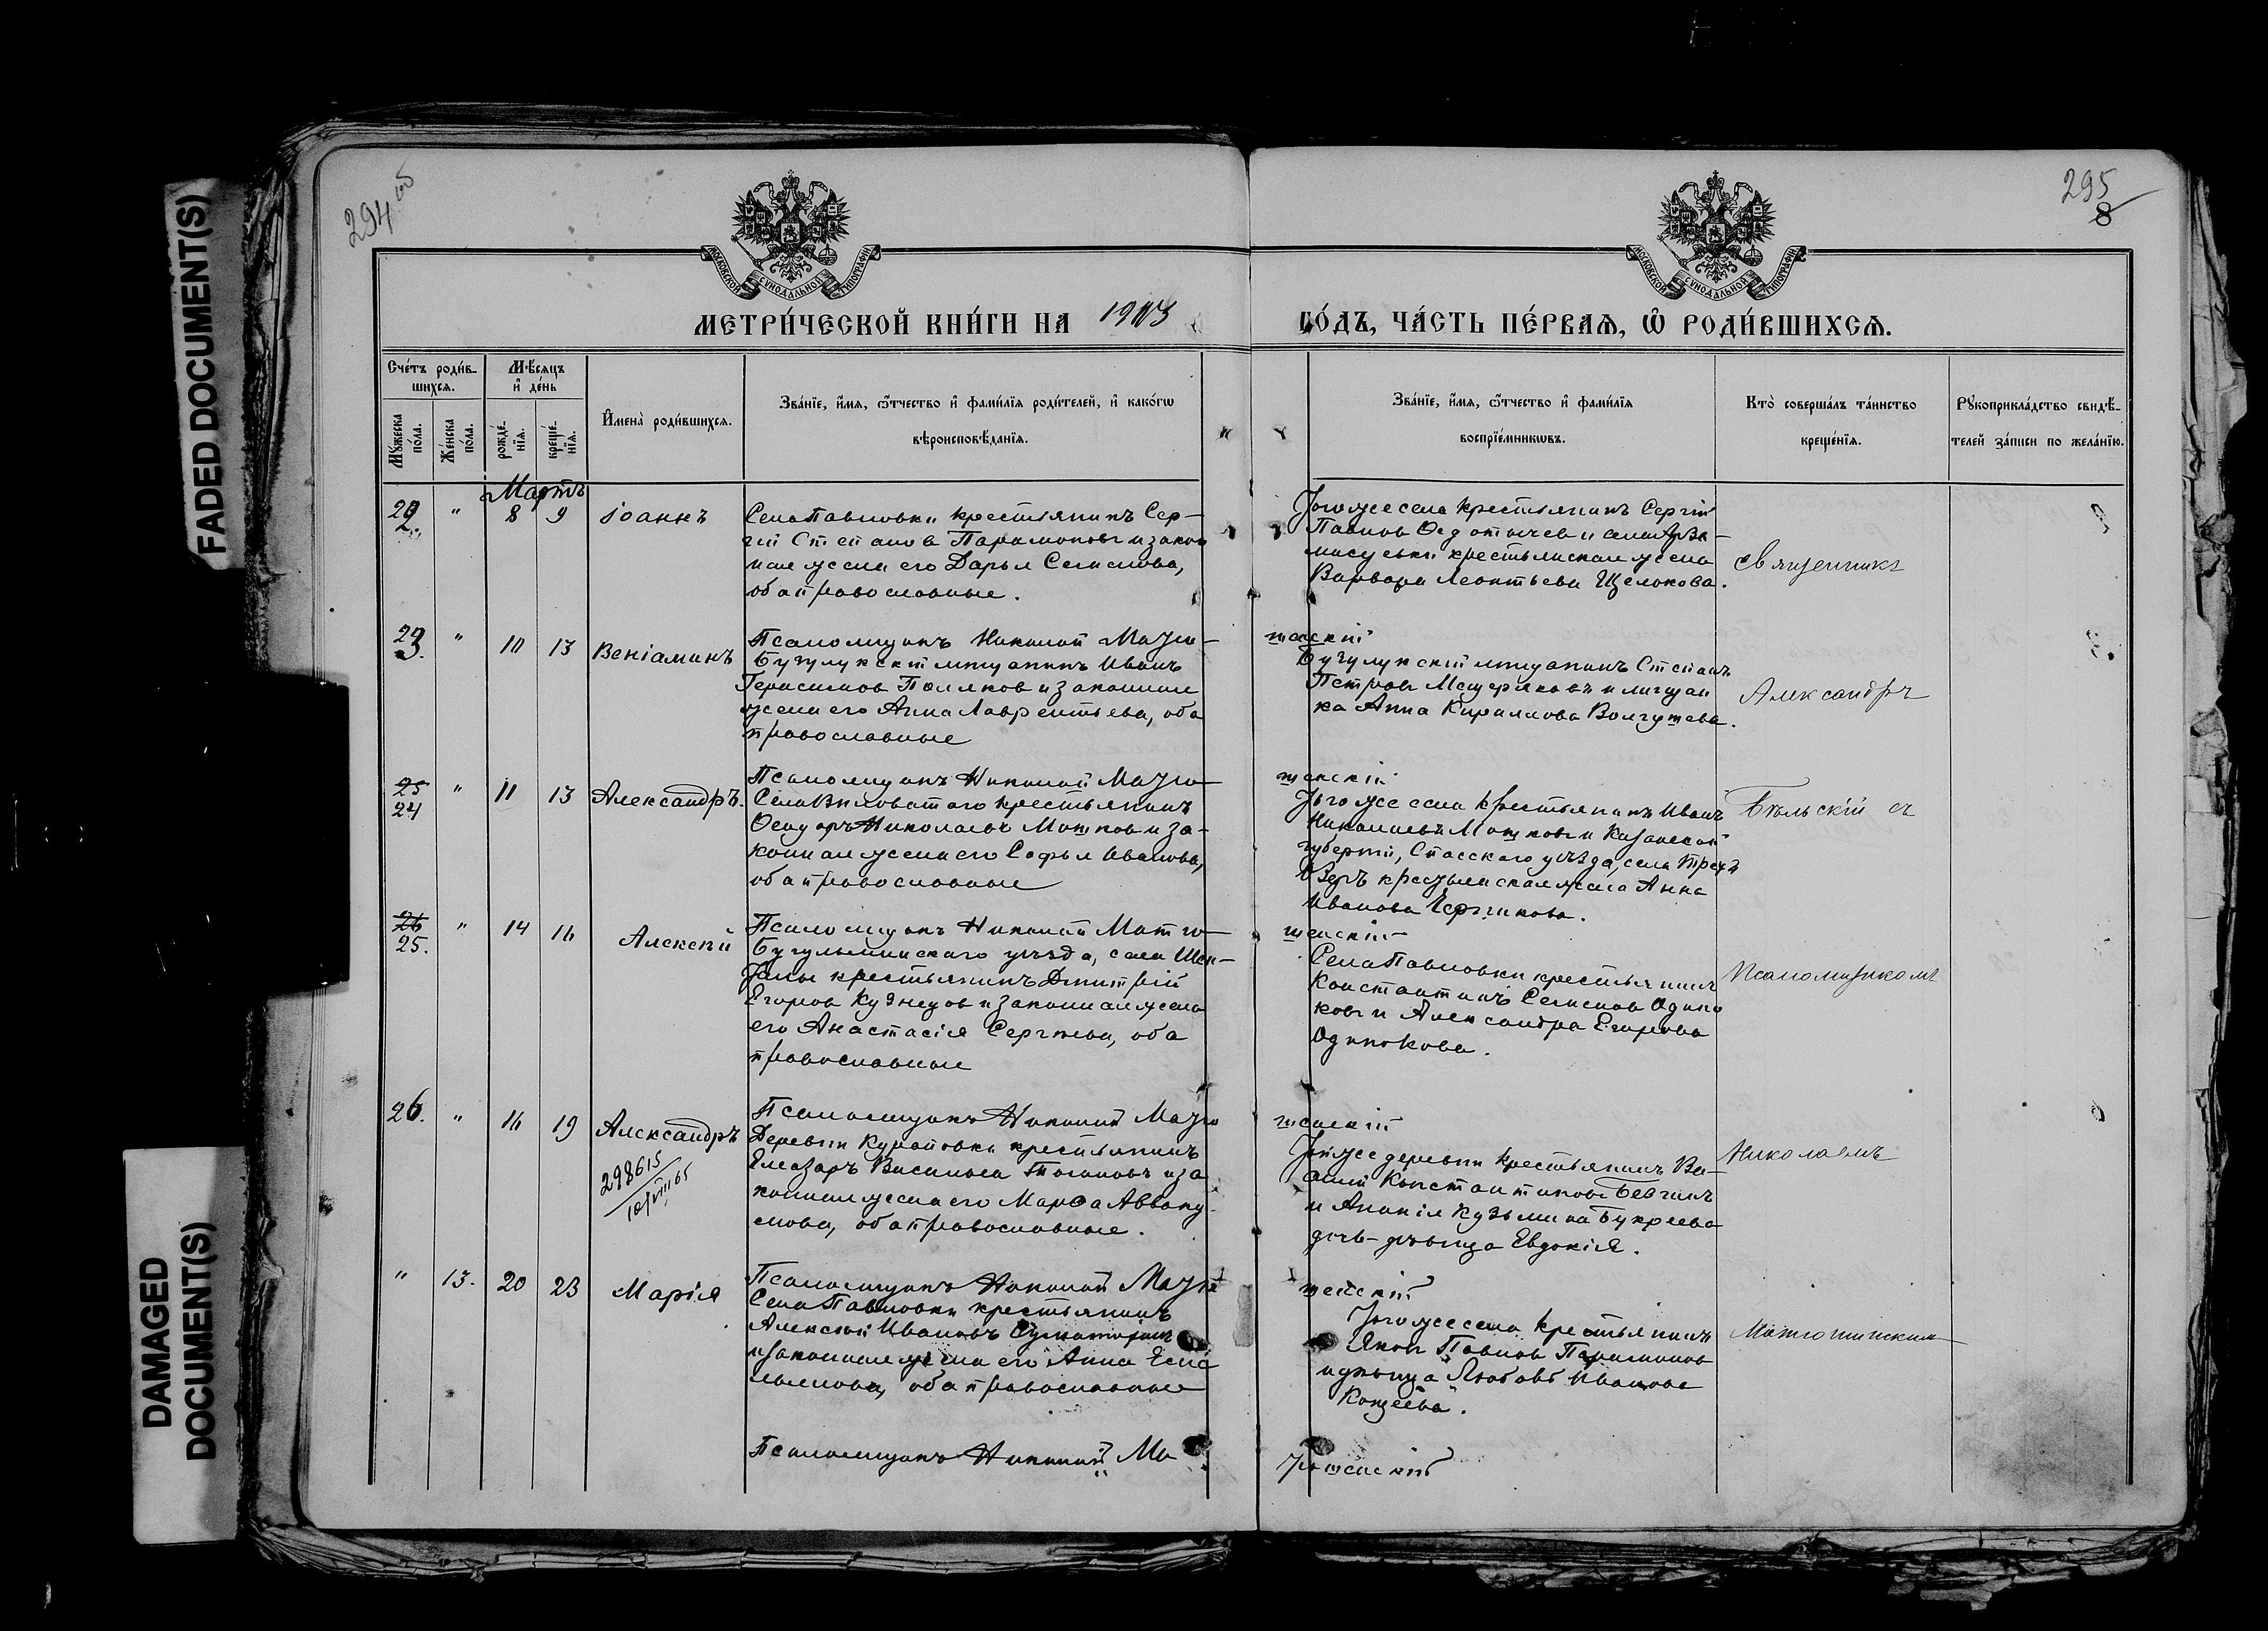 FADED DOCUMENT(S)
DAMAGED
DOCUMENT(S)
294 об
295
8
МОСКОВСКОЙ СѴНОДАЛЬНОЙ ТИПОГРАФІИ
МОСКОВСКОЙ СѴНОДАЛЬНОЙ ТИПОГРАФІИ
МЕТРИ́ЧЕСКОЙ КНИ́ГИ НА 1903
ГО́ДЪ, ЧА́СТЬ ПЕ́РВАѦ, Ѡ҆ РОДИ́ВШИХСѦ.
Сче́тъ роди́в-
шихсѧ.
Мѣ́сяцъ
и҆ де́нь
Мꙋ́жеска
по́ла.
Же́нска
по́ла.
рожде́-
нїѧ.
креще́-
нїѧ.
И҆мена̀ роди́вшихсѧ.
Зва́нїе, и҆́мѧ, ѻ҆́тчество и҆ фами́лїѧ роди́телей, и҆ како́гѡ
вѣроисповѣ́данїѧ.
Зва́нїе, и҆́мѧ, ѻ҆́тчество и҆ фами́лїѧ
воспрїе́мникѡвъ.
Кто̀ соверша́лъ та́инство
креще́нїѧ.
Рꙋкоприкла́дство свидѣ́-
телей за́писи по жела́нїю.
Мартъ
22.
"
8
9
Іоаннъ
Села Павловки крестьянинъ Сер-
гій Степанов Парамоновъ и закон
ная жена его Дарья Семенова,
оба православные.
Того же села крестьянинъ Сергій
Павлов
крестьянская жена
Варвара Леонтьева Щелокова.
Священникъ
23.
"
10
13
Веніаминъ
Псаломщикъ Николай Матю-
шенскій
Бугулукскій мещанинъ Иванъ
Герасимов Поляков и законная
жена его Анна Лаврентьева, оба
православные
Бугулукскій мещанинъ Степанъ
Петровъ Мещеряковъ и мещан
ка Анна Кириллова Волгушева.
Александръ
25
24
"
11
13
Александръ.
Псаломщикъ Николай Матю-
шенскій
Села Виловатаго крестьянинъ
Ѳеодоръ Николаевъ Мошков и за-
конная жена его Софья Иванова,
оба православные
Того же села крестьянинъ Иванъ
Николаевъ Мошковъ и Казанской
губерніи, Спасскаго уѣзда, села Трехъ
Озеръ крестьянская жена Анна
Иванова
Бѣльскій съ
26
25.
"
14
16
Алексѣй
Псаломщикъ Николай Матю-
шенскій
Бугульминскаго уѣзда, села Шен-
талы крестьянинъ Дмитрій
Егоров Кузнецов и законная жена
его Анастасія Сергѣева, оба
православные
Села Павловки крестьянинъ
Константинъ Семенов Одино
ковъ и Александра Егорова
Одинокова.
Псаломщикомъ
26.
"
16
19
Александръ
298615
Псаломщикъ Николай Матю
шенскій
Деревни Куроповки крестьянинъ
Елеазаръ Васильев и за
конная жена его Марѳа Аввaку-
мова, оба православные.
Той же деревни крестьянинъ Ва-
силій Константиновъ
и Ананія Кузьмина Букреева
дочь-дѣвица Евдокія.
Николаемъ
"
13.
20
23
Марія
Псаломщикъ Николай Матю
шенскій
Села Павловки крестьянинъ
Алексѣй Ивановъ
и законная жена его Анна Еме
льянова, оба православные
Того же села крестьянинъ
Яковъ Павлов Парамонов
и дѣвица Любовь Иванова
Кощеева.
Матюшинским
Псаломщикъ Николай Ма
тюшенскій